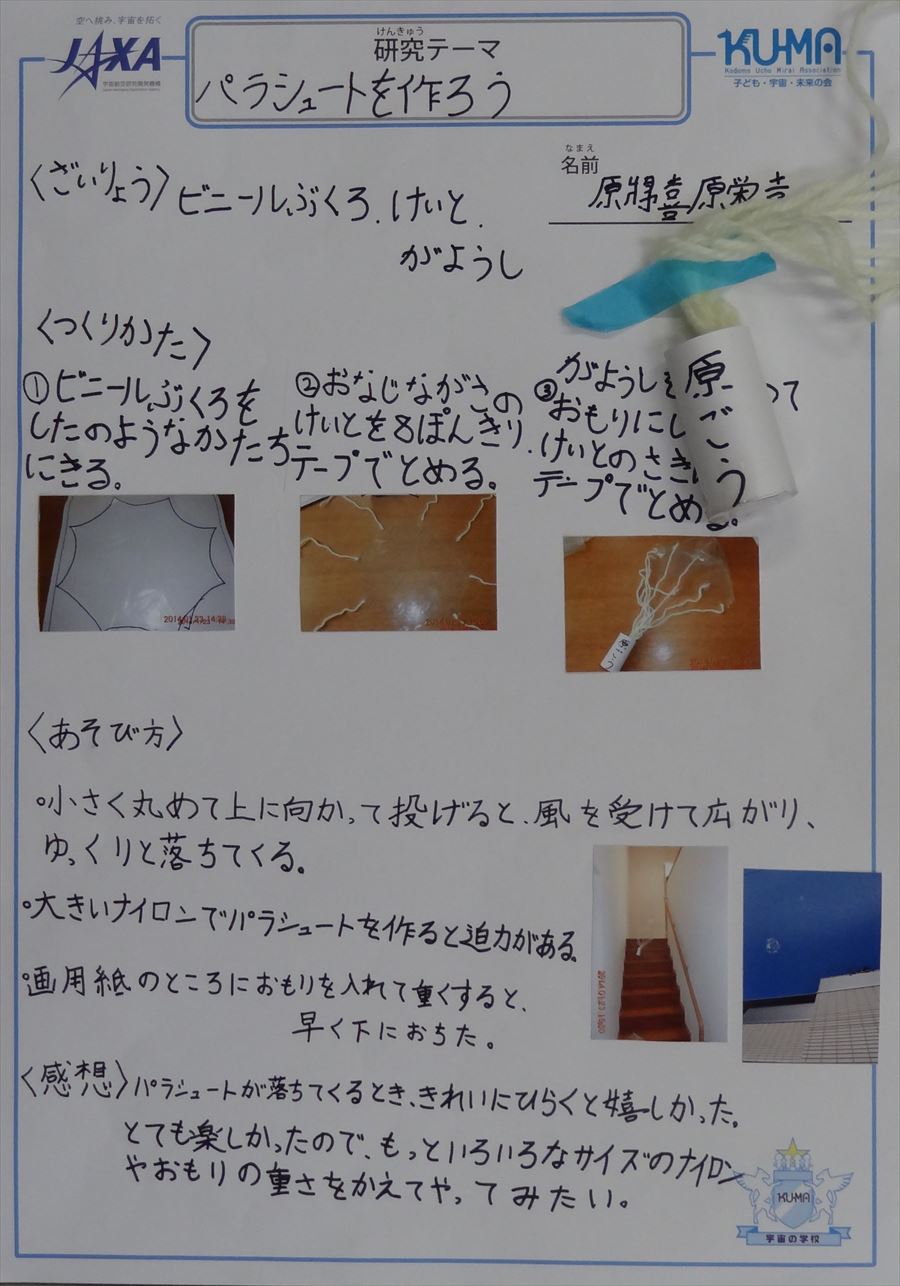 空へ挑み、宇宙を拓く
JAXA
宇宙航空研究開発機構
Japan Aerospace Exploration Agency
けんきゅう
研究テーマ
パラシュートを作ろう
KU-MA
Kodomo Uchu Mirai Association
子ども・宇宙・未来の会
なまえ
名前
原將喜原栄吉
〈ざいりょう〉ビニールぶくろ.けいと.
がようし
〈つくりかた〉
①ビニールぶくろを
したのようなかたち
にきる。
②おなじながさの
けいとを8ぽんきり.
テープでとめる。
③がようしを
って
おもりにし
けいとのさき
テープでとめる。
原ごう
2014
〈あそび方〉
・小さく丸めて上に向かって投げると、風を受けて広がり、
ゆっくりと落ちてくる。
・大きいナイロンでパラシュートを作ると迫力がある。
・画用紙のところにおもりを入れて重くすると、
早く下におちた。
〈感想〉パラシュートが落ちてくるとき、きれいにひらくと嬉しかった。
とても楽しかったので、もっといろいろなサイズのナイロン
やおもりの重さをかえてやってみたい。
KU-MA
宇宙の学校